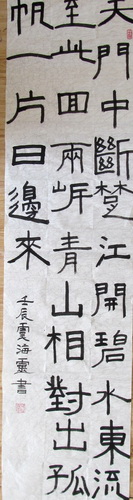 天門中斷楚江開碧水東流
至此回兩岸青山相對出孤
帆一片日邊來
壬辰夏海靈書